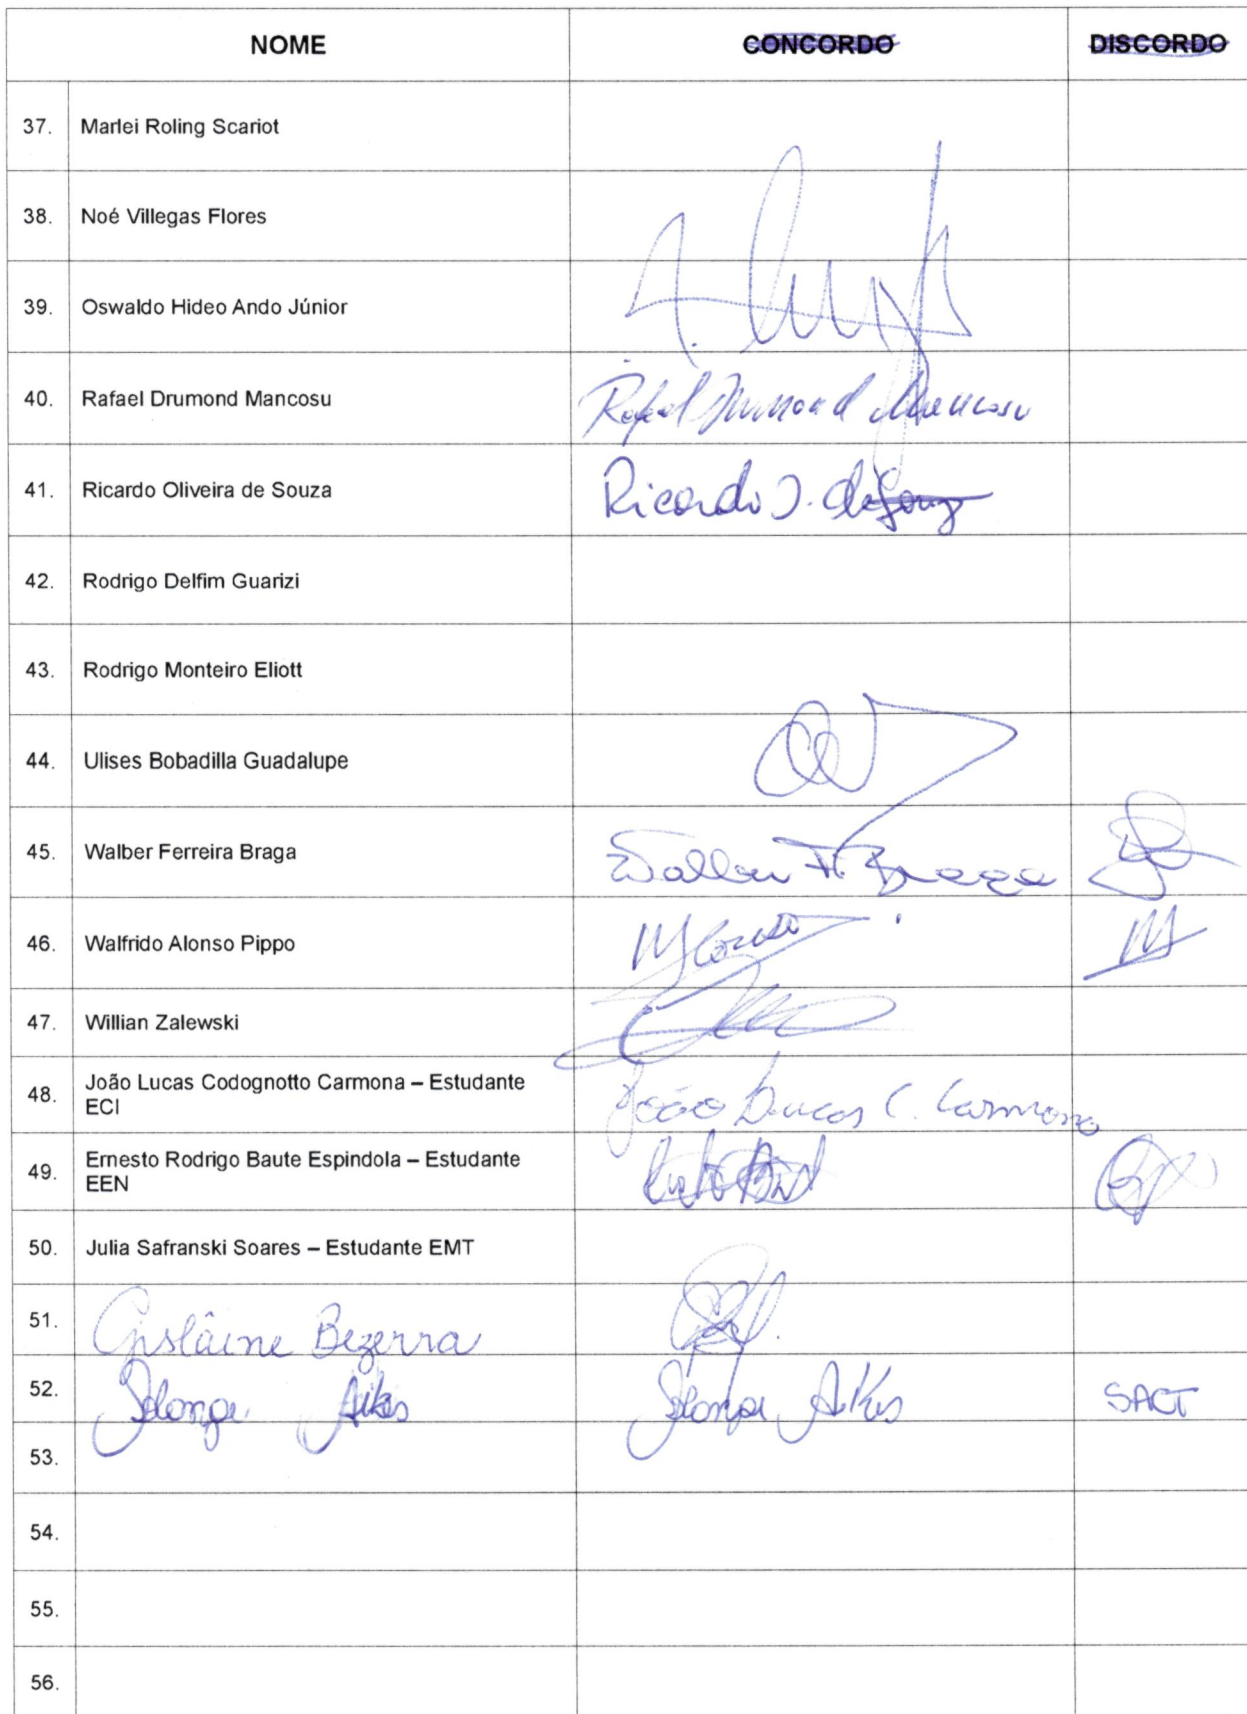 NOME CONCORDO DISCORDO
37. Marlei Roling Scariot
38. Noé Villegas Flores
39. Oswaldo Hideo Ando Júnior
40. Rafael Drumond Mancosu Rafael Drumond Mancosu
41. Ricardo Oliveira de Souza Ricardo O. de Souza
42. Rodrigo Delfim Guarizi
43. Rodrigo Monteiro Eliott
44. Ulises Bobadilla Guadalupe
45. Walber Ferreira Braga Walber F. Braga
46. Walfrido Alonso Pippo
47. Willian Zalewski
48. João Lucas Codognotto Carmona – Estudante João Lucas C. Carmona
ECI
49. Ernesto Rodrigo Baute Espindola – Estudante
EEN
50. Julia Safranski Soares – Estudante EMT
51. Gislaine Bezerra
52. SACT
53.
54.
55.
56.